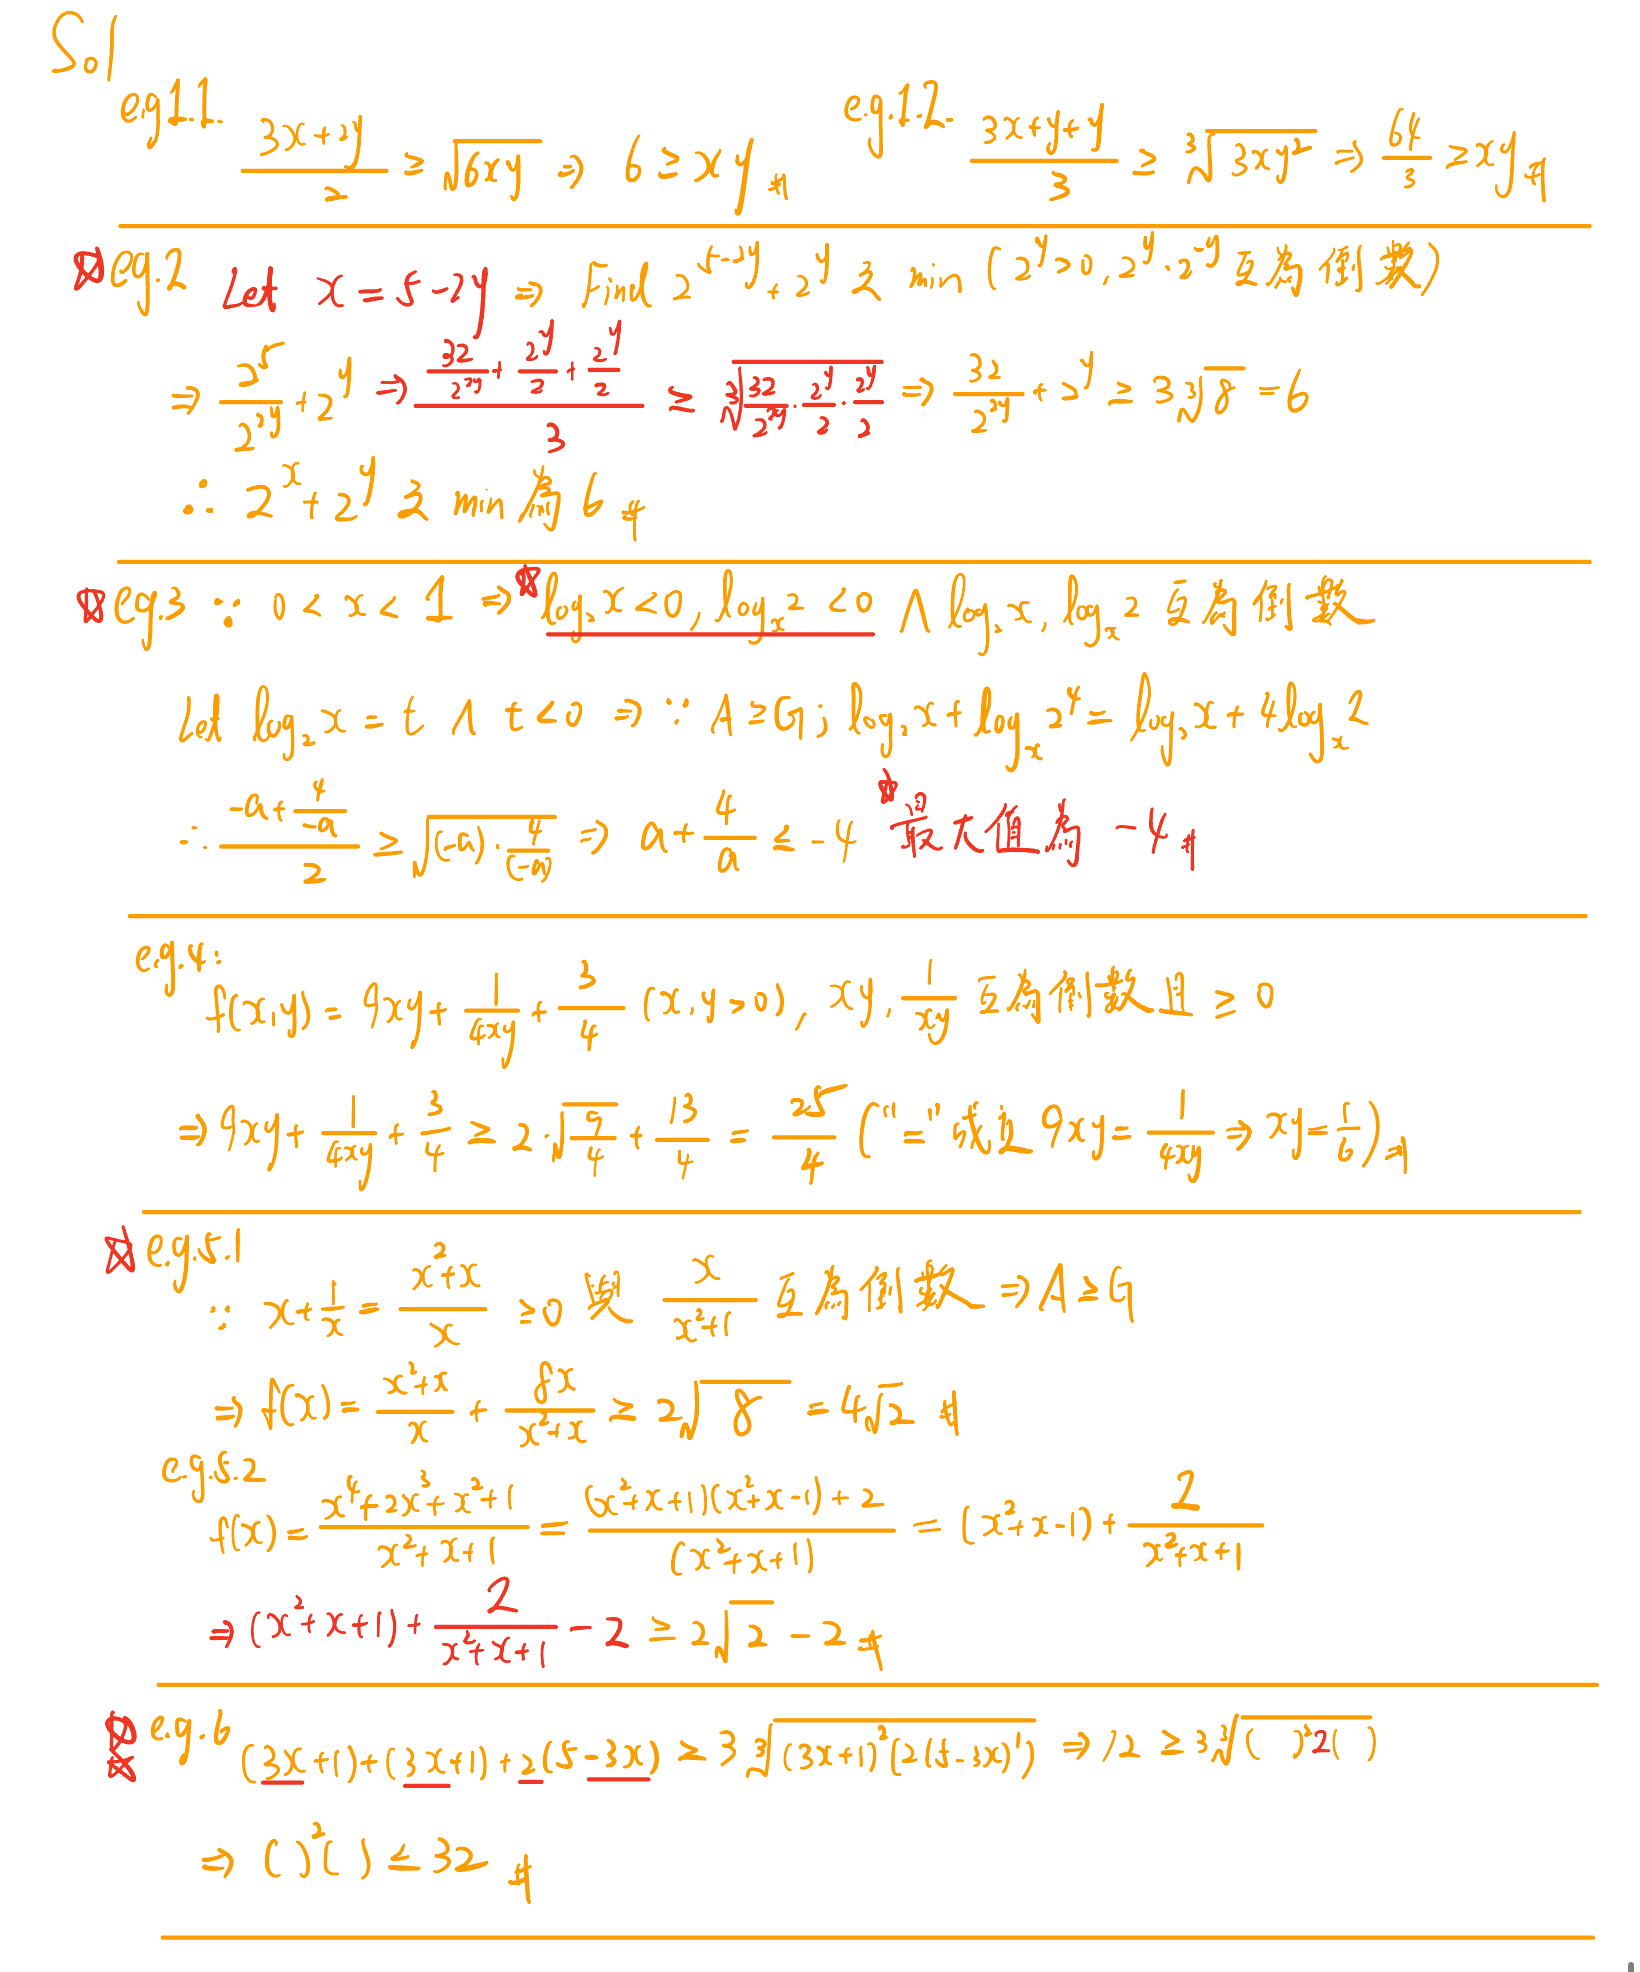 Sol
e.g 1.1. (3x+2y)/2 ≥ √(6xy) ⇒ 6 ≥ xy #
e.g.1.2. (3x+y+y)/3 ≥ ∛(3xy²) ⇒ 64/3 ≥ xy #
☆ eg.2 Let x = 5-2y ⇒ Find 2^(5-2y) + 2^y 之 min (2^y>0, 2^y · 2^(-y) 互為倒數)
⇒ 2^5/2^(2y) + 2^y ⇒ (32/2^(2y) + 2^y/2 + 2^y/2)/3 ≥ ∛(32/2^(2y) · 2^y/2 · 2^y/2) ⇒ 32/2^(2y) + 2^y ≥ 3∛8 = 6
∴ 2^x + 2^y 之 min 為 6 #
☆ eg.3 ∵ 0 < x < 1 ⇒ ☆ log₂x < 0, logₓ2 < 0 ∧ log₂x, logₓ2 互為倒數
Let log₂x = t ∧ t < 0 ⇒ ∵ A ≥ G; log₂x + logₓ2⁴ = log₂x + 4logₓ2
∴ (-a + 4/(-a))/2 ≥ √((-a)·4/(-a)) ⇒ a + 4/a ≤ -4 ☆ 最大值為 -4 #
e.g.4:
f(x,y) = 9xy + 1/(4xy) + 3/4 (x,y>0), xy, 1/(xy) 互為倒數且 ≥ 0
⇒ 9xy + 1/(4xy) + 3/4 ≥ 2·√(9/4) + 13/4 = 25/4 ("=" 成立 9xy = 1/(4xy) ⇒ xy = 1/6) #
☆ e.g.5.1
∵ x + 1/x = (x²+x)/x ≥ 0 與 x/(x²+1) 互為倒數 ⇒ A ≥ G
⇒ f(x) = (x²+x)/x + 8x/(x²+x) ≥ 2√8 = 4√2 #
e.g.5.2
f(x) = (x⁴+2x³+x²+1)/(x²+x+1) = ((x²+x+1)(x²+x-1)+2)/(x²+x+1) = (x²+x-1) + 2/(x²+x+1)
⇒ (x²+x+1) + 2/(x²+x+1) - 2 ≥ 2√2 - 2 #
☆☆ e.g.6 (3x+1)+(3x+1)+2(5-3x) ≥ 3∛((3x+1)²(2(5-3x)¹) ⇒ 12 ≥ 3∛(( )²2( ))
⇒ ( )²( ) ≤ 32 #